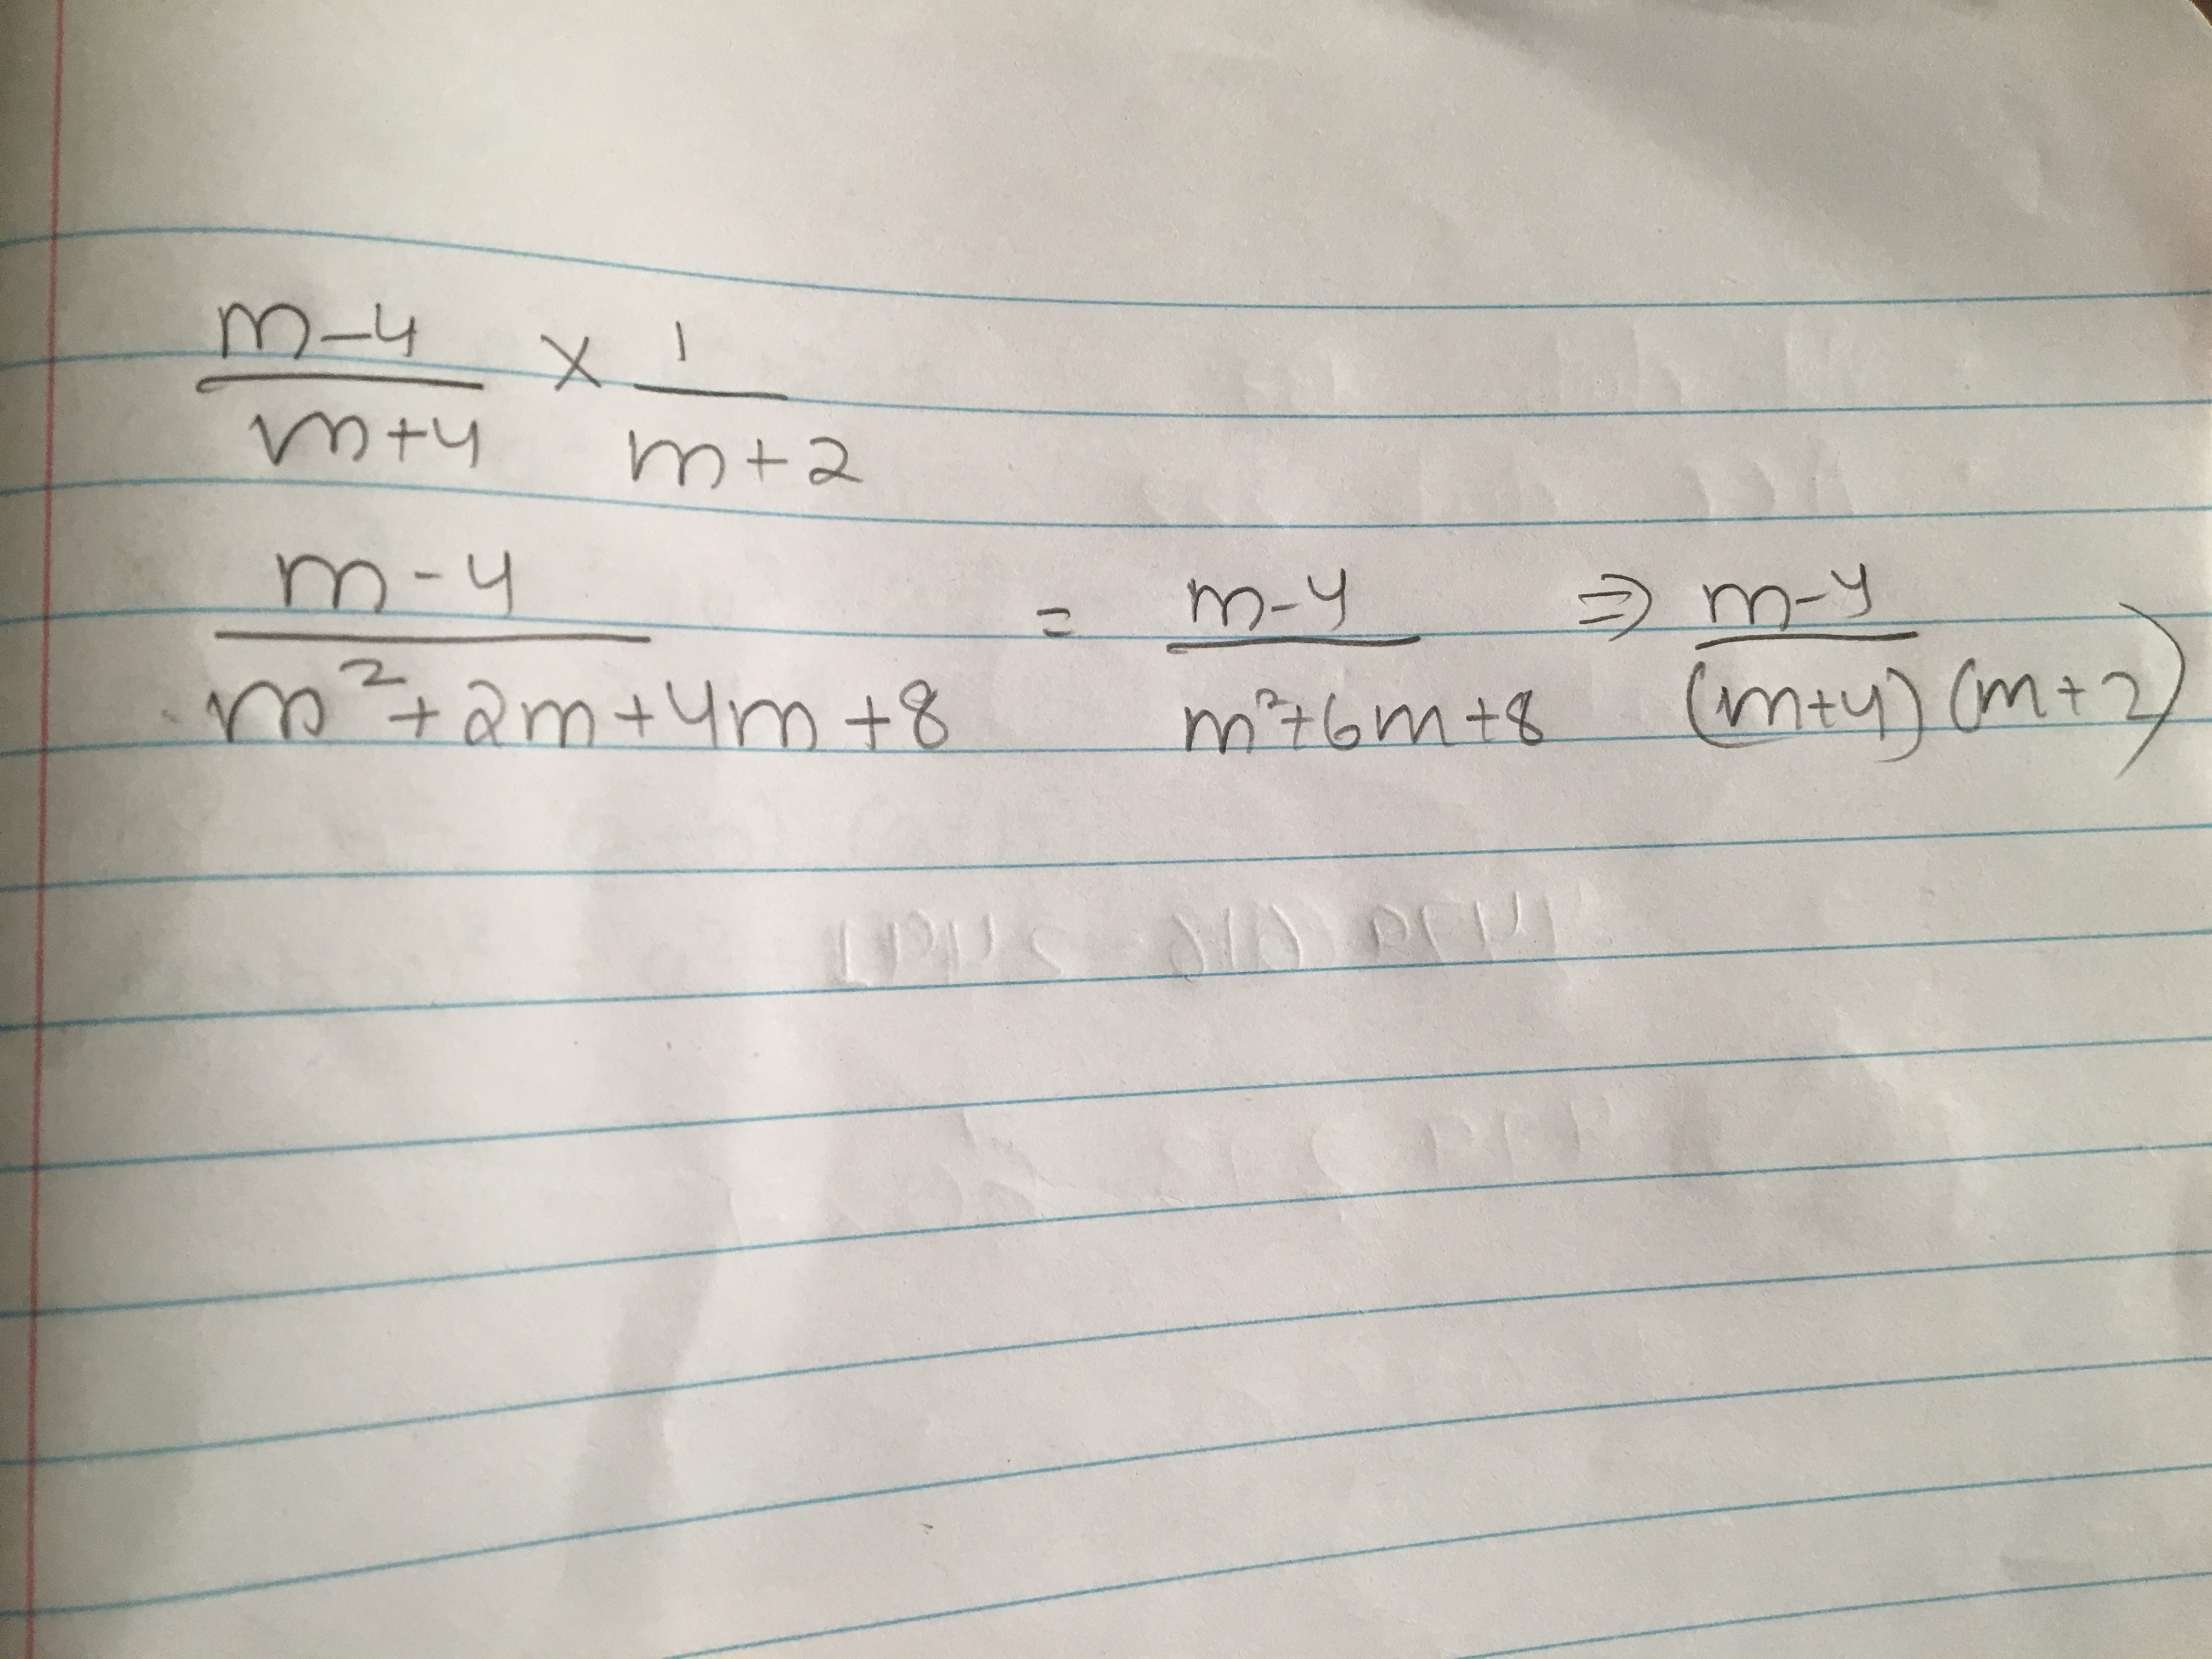 m-4 / m+4 × 1 / m+2
m-4 / m²+2m+4m+8 = m-4 / m²+6m+8 ⇒ m-4 / (m+4)(m+2)